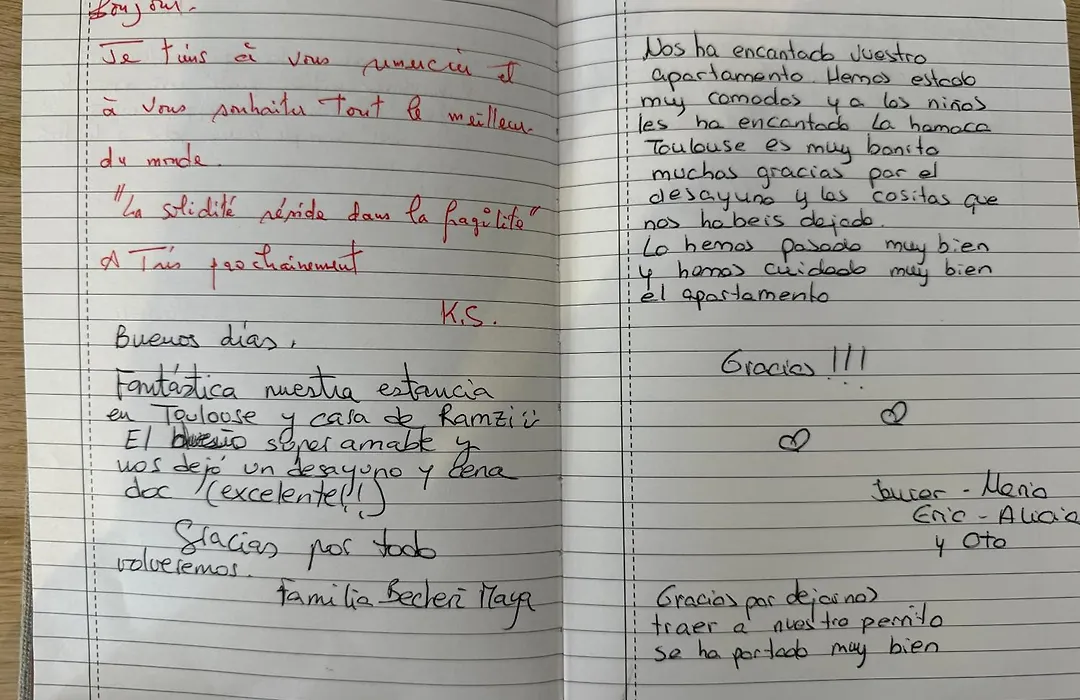 Bonjour.
Je tiens à vous remercier et
à vous souhaiter tout le meilleur
du monde.
"La solidité réside dans la fragilité"
A Très prochainement
K.S.
Buenos días,
Fantástica nuestra estancia
en Touloose y casa de Ramzi
El dueño super amable y
nos dejó un desayuno y cena
doc (excelente!!)
Gracias por todo
volveremos.
Familia Becheri Maya
Nos ha encantado vuestro
apartamento Hemos estado
muy comodos y a los niños
les ha encantado la hamaca
Toulouse es muy bonito
muchas gracias por el
desayuno y las cositas que
nos habeis dejado.
Lo hemos pasado muy bien
y hemos cuidado muy bien
el apartamento
Gracias!!!
- Maria
Eric - Alicia
y Oto
Gracias por dejarnos
traer a nuestro perrito
se ha portado muy bien